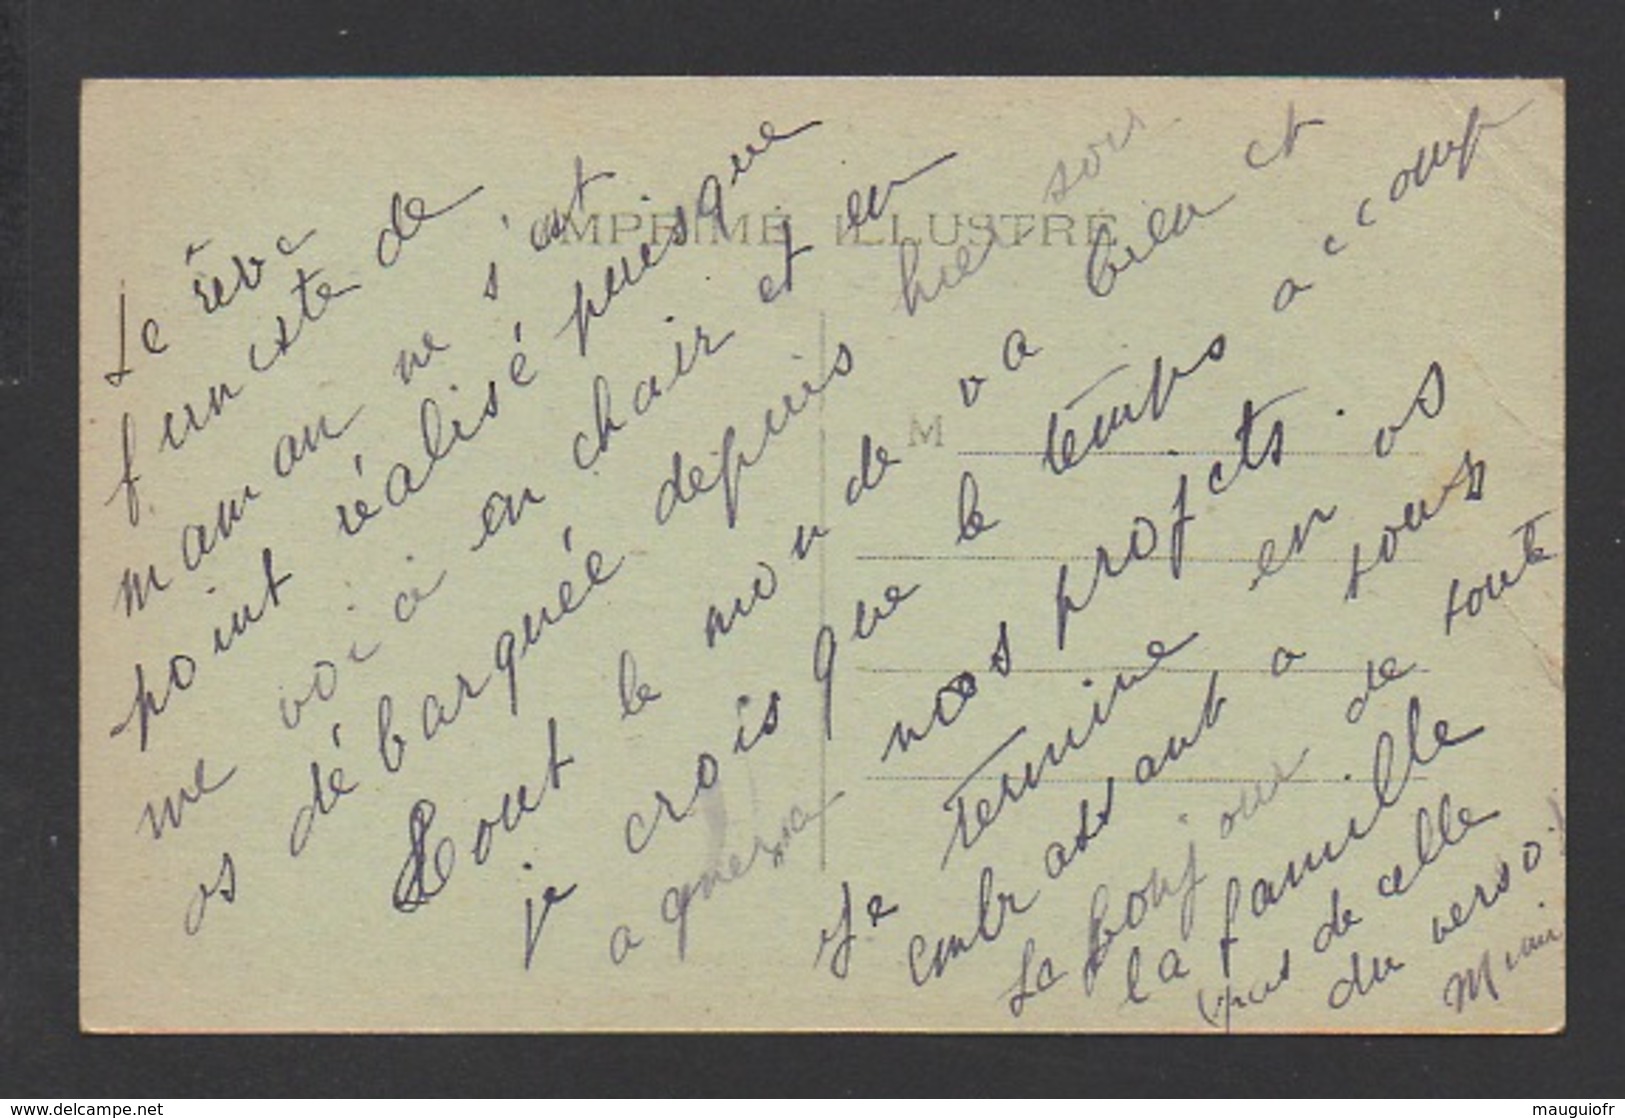 Le rêve
funeste de
maman ne s'est
point réalisé puisque
me voici en chair et en
os débarquée depuis hier soir
Tout le monde va bien et
je crois que le temps accomp
agnera nos projets.
Je termine en os
embrassant a tous
Le bonjour de toute
la famille
(pas de celle
du verso!)
Mimi
IMPRIMÉ ILLUSTRÉ
M
www.delcampe.net
mauguiofr